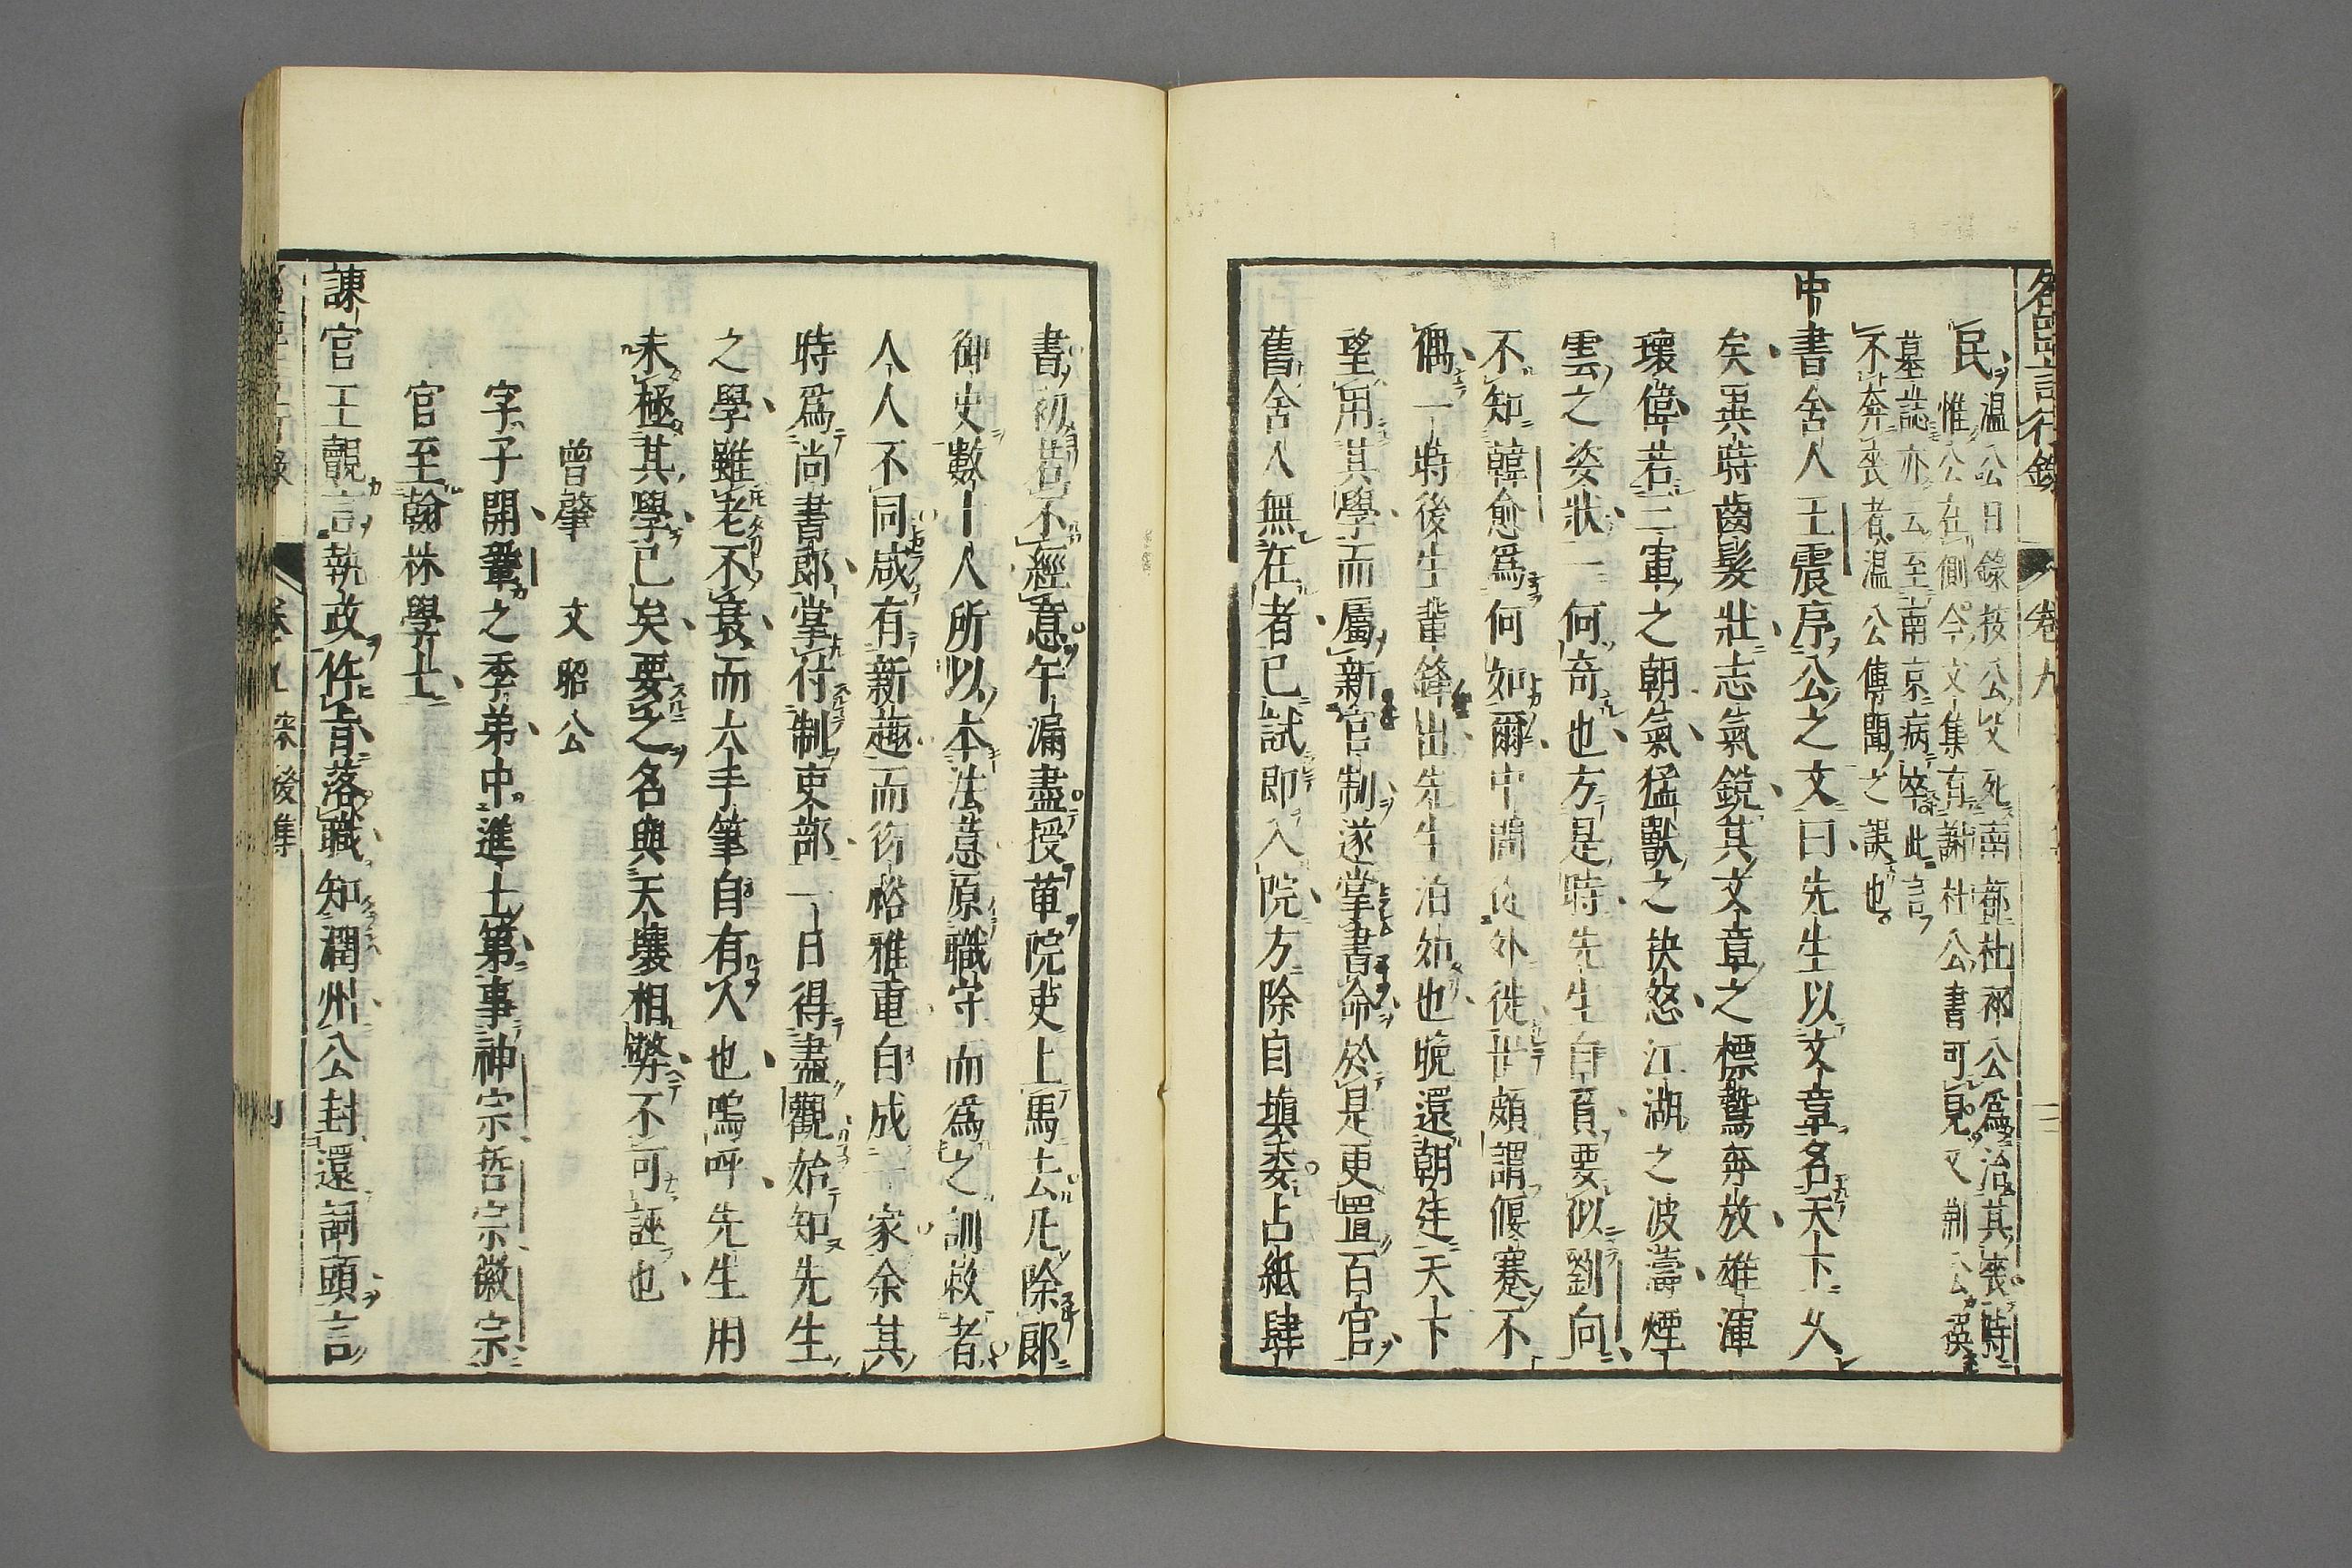 民温公日錄按公父死南都杜祁公爲治其喪時
惟公在側今文集有謝杜公書可見又荆公撰
墓誌亦云至南京病卒此言
不奔喪者温公傳聞之誤也
中書舍人王震序公之文曰先生以文章名天下久
矣異時齒髮壯志氣銳其文章之標鷙奔放雄渾
瓌偉若三軍之朝氣猛獸之抉怒江湖之波濤煙
雲之姿狀一何奇也方是時先生自負要似劉向
不知韓愈爲何如爾中間徙外徙世頗謂偃蹇不
偶一時後生輩鋒出先生泊如也晚還朝廷天下
望用其學而屬新官制遂掌書命於是更置百官
舊舍人無在者已試即入院方除自填委占紙肆
書初若不經意午漏盡授草院吏上馬去凡除郎
御史數十人所以本法意原職守而爲之訓敕者
人人不同咸有新趣而衍裕雅重自成一家余其
時爲尚書郎掌付制吏部一日得盡觀始知先生
之學雖老不衰而大手筆自有人也嗚呼先生用
未極其學已矣要之名與天壤相弊不可誣也
曾肇 文昭公
字子開鞏之季弟中進士第事神宗哲宗徽宗
官至翰林學士
諫官王覿言執政忤旨落職知潤州公封還詞頭言